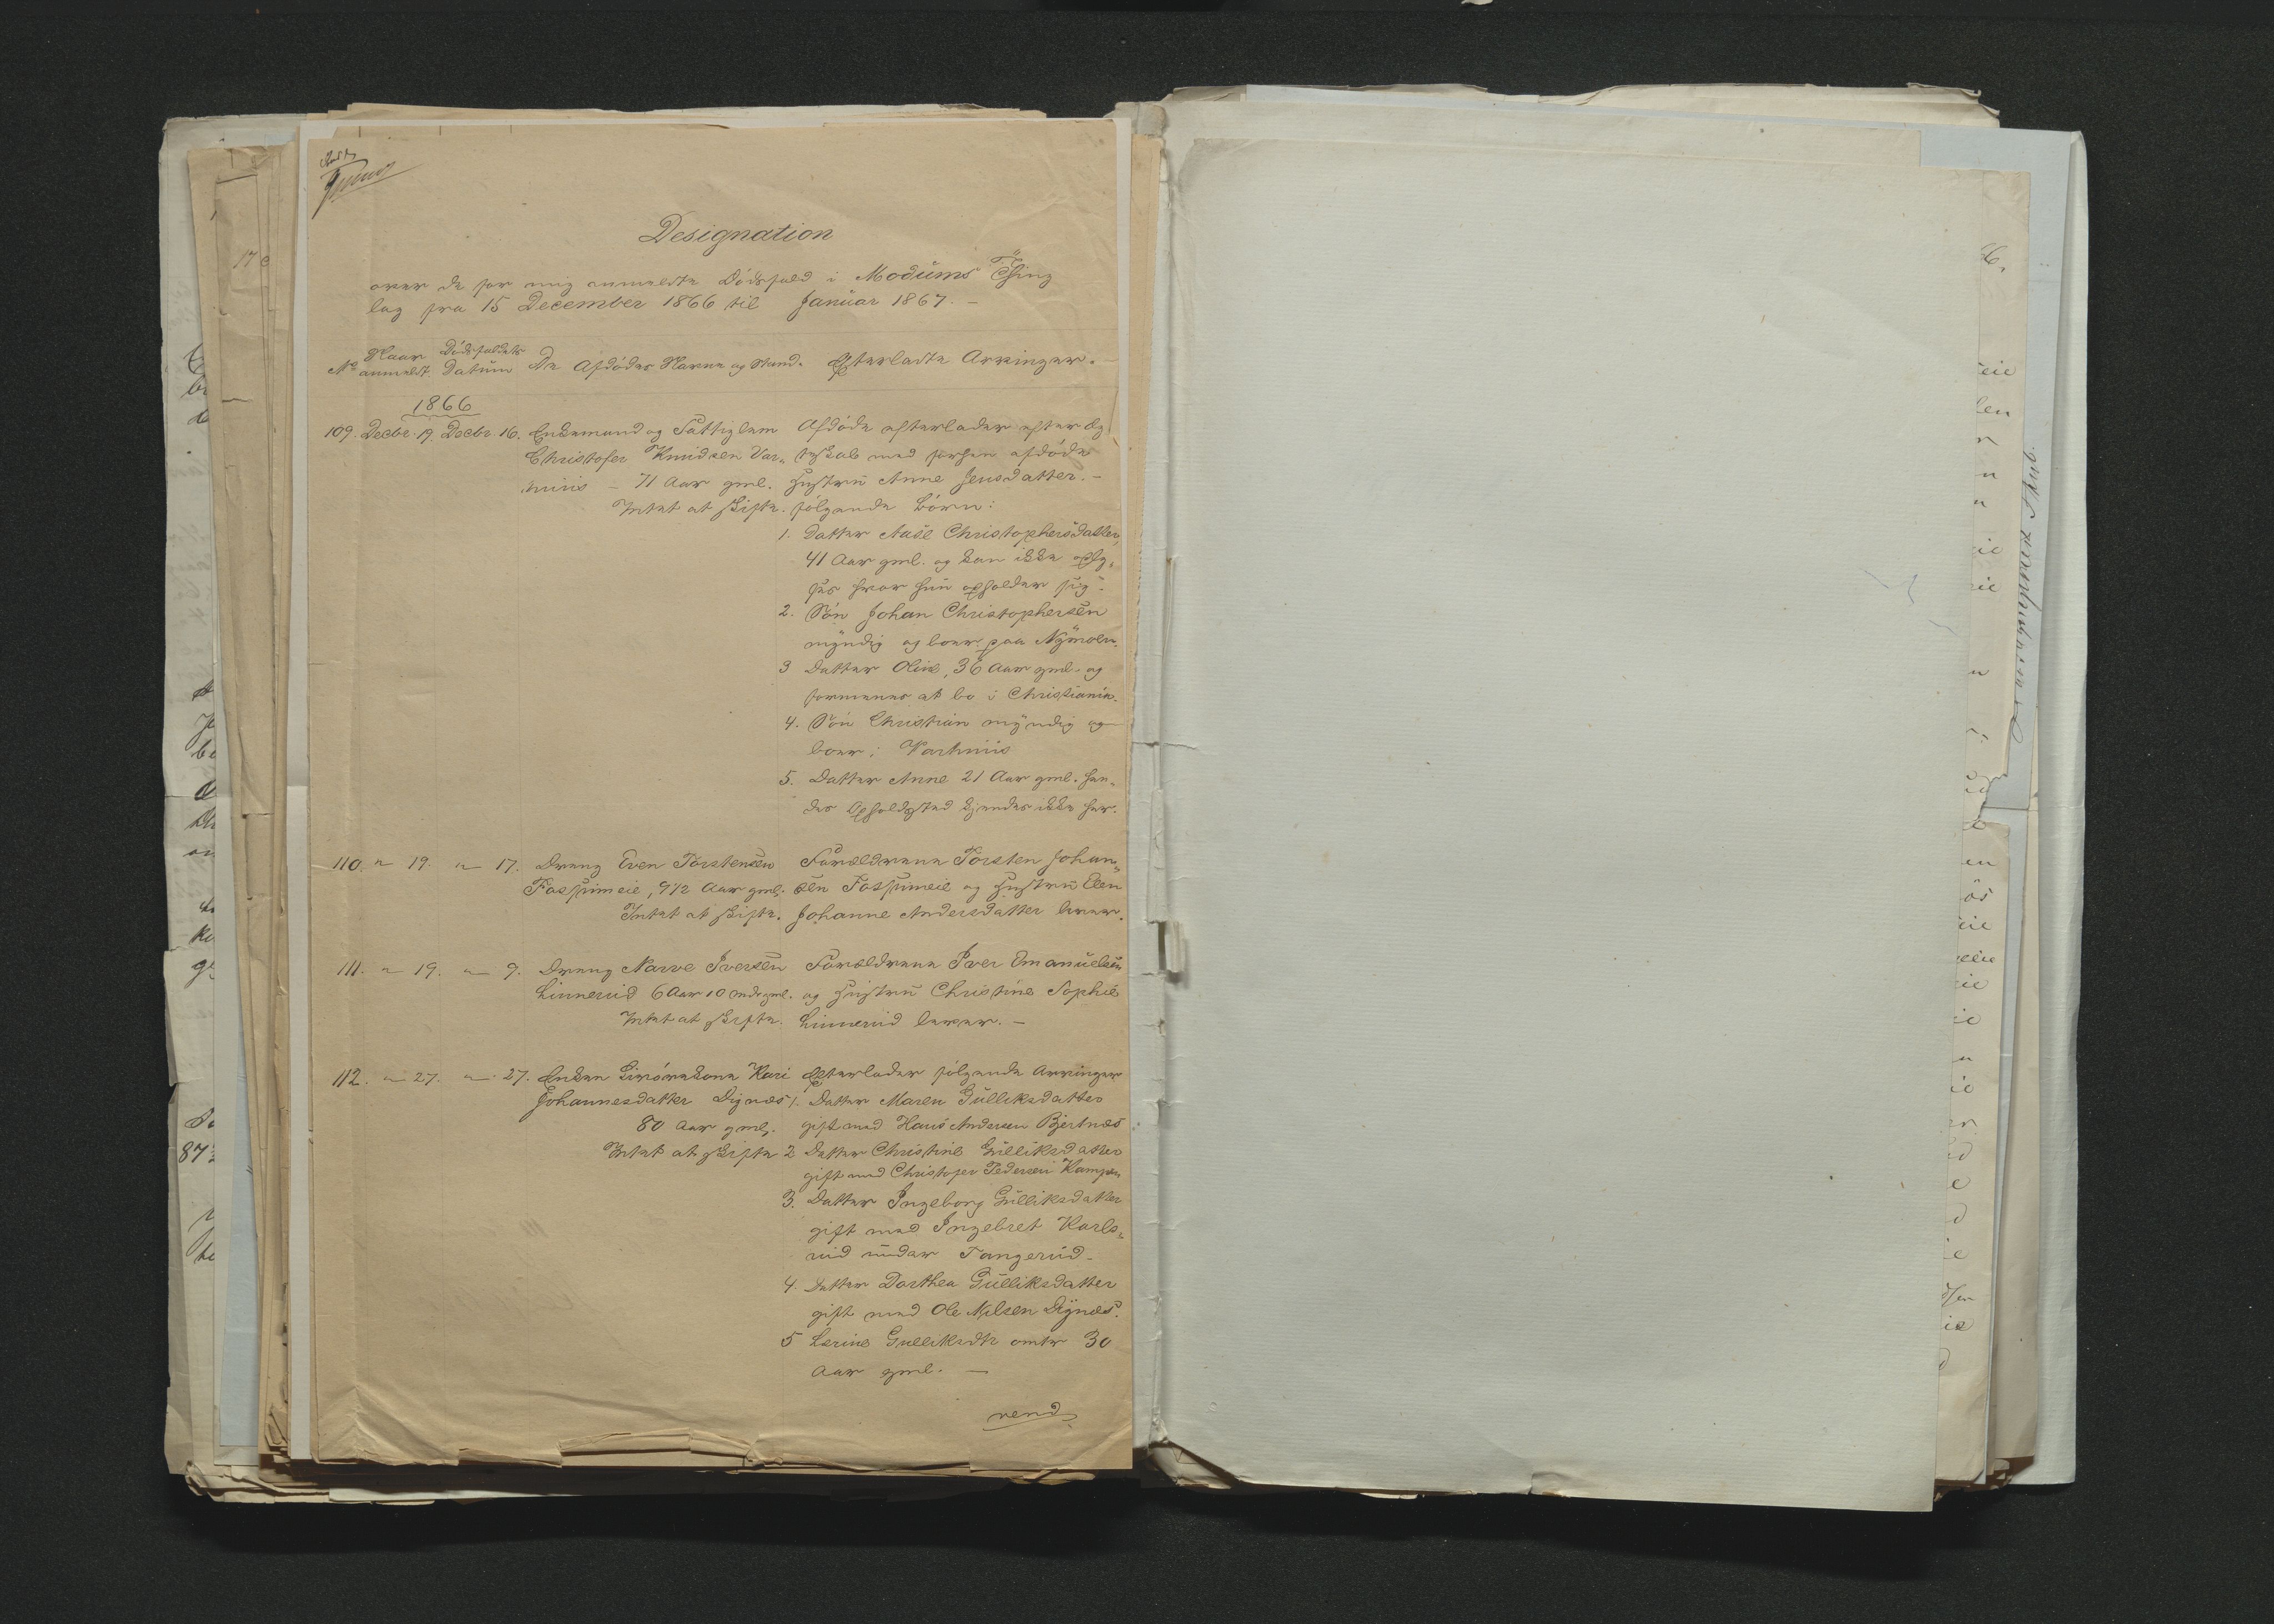 Designation
over de for mig anmeldte Dödsfald i Modüms Thing
lag fra 15 December 1866 til Janüar 1867. —
No Naar anmeldt. Dödsfaldets Datüm De Afdödes Navne og Stand. Efterladte Arvinger. —
1866
109. Decbr. 19. Decbr. 16. Enkemand og Fattiglem
Christofer Knüdsen Var„
— 71 Aar gml.
Intet at skifte.
Afdöde efterlader efter Æg
teskab med forhen afdöde
Hüstrü Anne Jensdatter. —
fölgende Börn:
1. Datter Aase Christophersdatter,
41 Aar gml. og kan ikke oply„
ses hvor hün opholder sig.
2. Sön Johan Christophersen
myndig og boer paa Nymoen.
3 Datter Oline, 36 Aar gml. og
formenes at bo i Christiania.
4. Sön Christian myndig og
boer i
5. Datter Anne 21 Aar gml. hen„
des Opholdsted kjendes ikke her.
110. " 19. " 17. Dreng Even Torstensen
9 1/2 Aar gml.
Intet at skifte.
Forældrene Torsten Johan„
sen og Hüstrü Elen
Johanne Andersdatter lever.
111. " 19. " 9. Dreng Narve Iversen
Linnerüd 6 Aar 10 Mdr gml.
Intet at skifte.
Forældrene Iver Emanüelsen
og Hüstrü Christine Sophie
Linnerüd lever. —
112. " 27. " 27. Enken Kari
Johannesdatter Dignæs
80 Aar gml.
Intet at skifte
Efterlader fölgende Arvinger
1. Datter Maren Gülliksdatter
gift med Hans Andersen Bjertnæs
2 Datter Christine Gülliksdatter
gift med Christofer Pedersen Kampen
3. Datter Ingeborg Gülliksdatter
gift med Ingebret Karls„
rüd ünder Tangerüd.
4. Datter Dorthea Gülliksdatter
gift med Ole Nilsen Dignæs.
5 Lovine Gulliksdtr omtr 30
Aar gml. —
vend